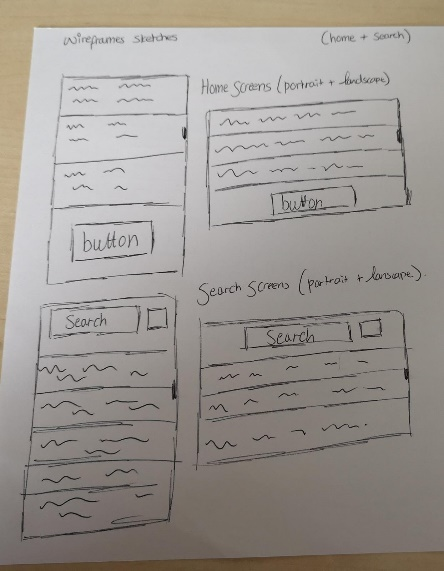 Wireframes sketches
(home + search)
Home Screens (portrait + landscape)
button
button
Search Screens (portrait + lanscape).
Search
Search